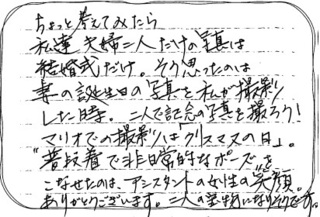 ちょっと考えてみたら
私達夫婦二人だけの写真は
結婚式だけ。そう思ったのは
妻の誕生日の写真を私が撮影
した時。二人で記念の写真を撮ろう!
マリオでの撮影は「クリスマスの日」。
"普段着で非日常的なポーズ"を
こなせたのは、アシスタントの女性の"笑顔"。
ありがとうございます。二人の宝物になりそうです。